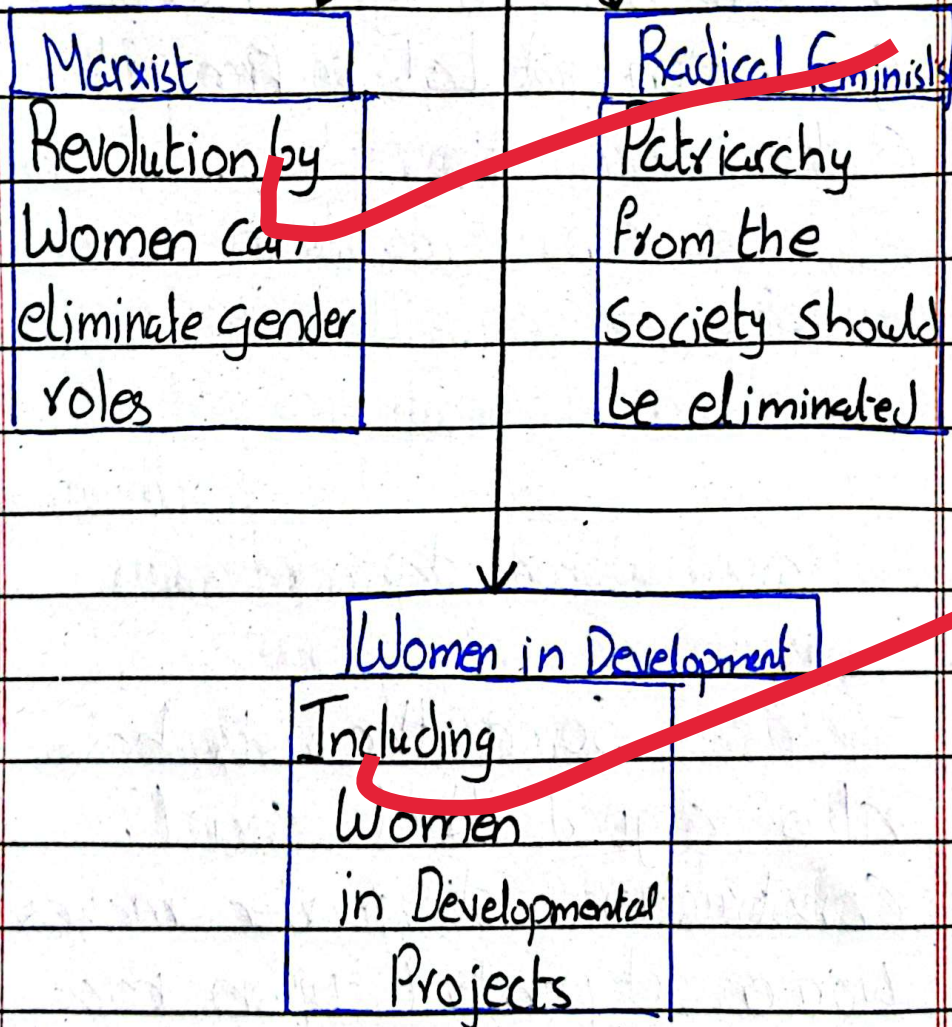 Marxist
Revolution by
Women can
eliminate gender
roles
Radical feminists
Patriarchy
from the
Society should
be eliminated
Women in Development
Including
Women
in Developmental
Projects